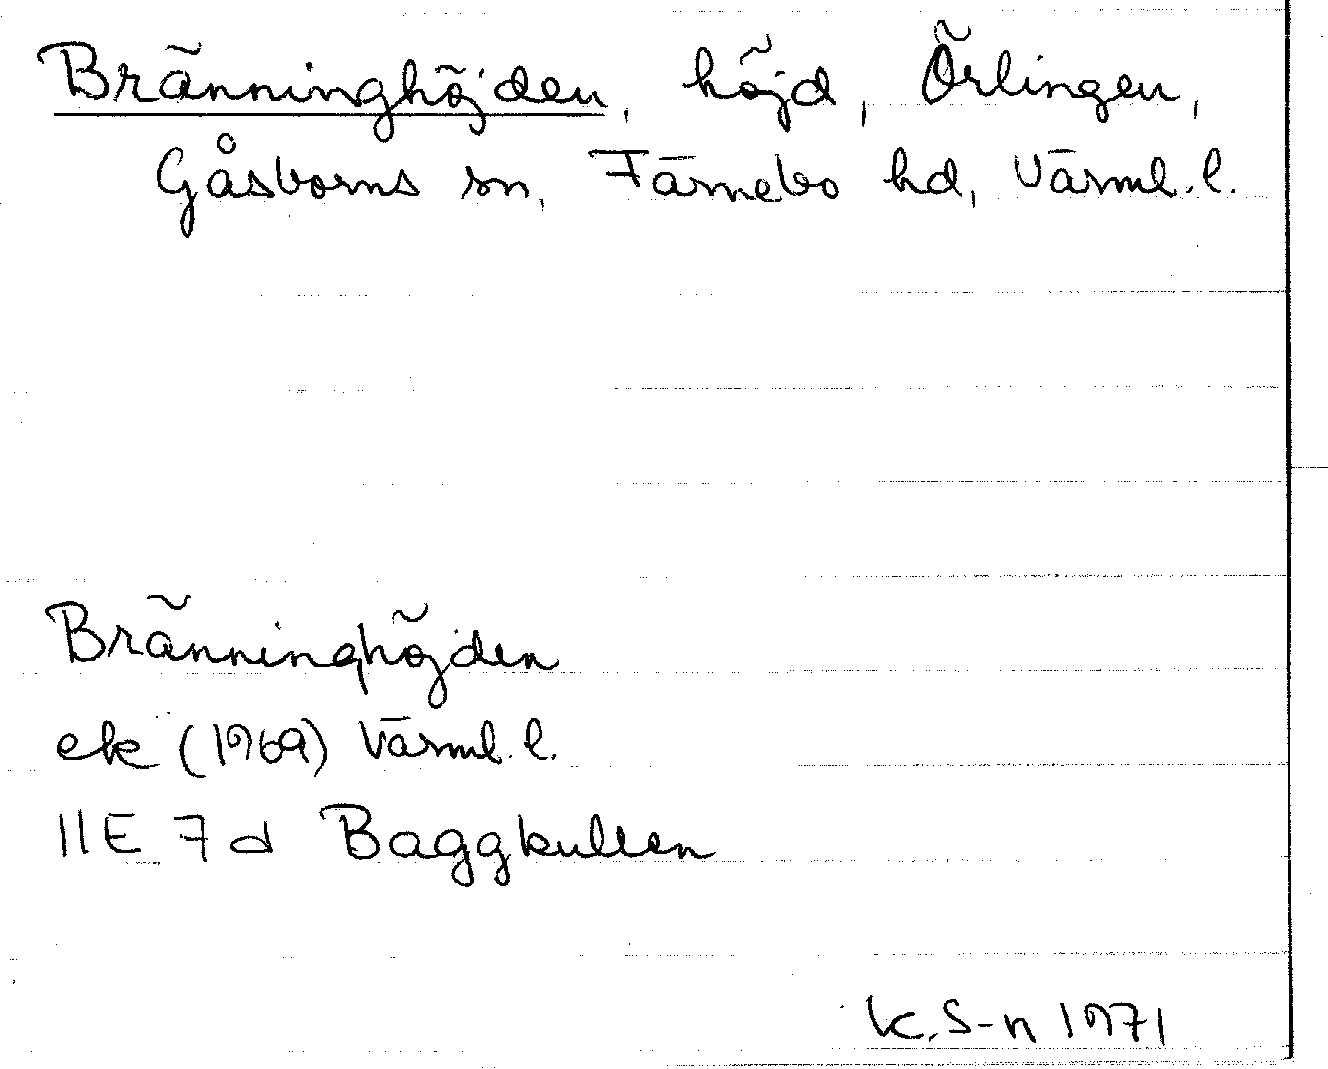 Bränninghöjden, höjd, Örlingen,
Gåsborns sn, Färnebo hd, Värml. l.
Bränninghöjden
ek (1969) Värml. l.
11E 7d Baggkullen
K. S-n 1971